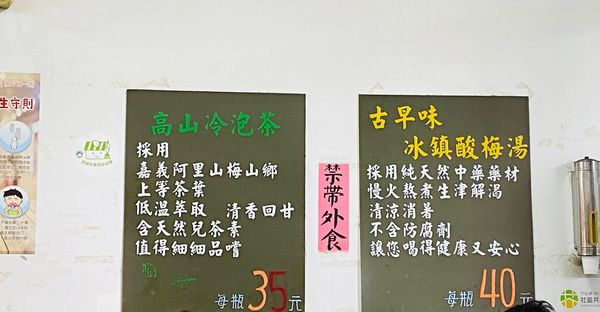 生守則
高山冷泡茶
採用
嘉義阿里山梅山鄉
上等茶葉
低溫萃取 清香回甘
含天然兒茶素
值得細細品嚐
每瓶35元
禁帶外食
古早味
冰鎮酸梅湯
採用純天然中藥藥材
慢火熱煮生津解渴
清涼消暑
不含防腐劑
讓您喝得健康又安心
每瓶40元
社區共